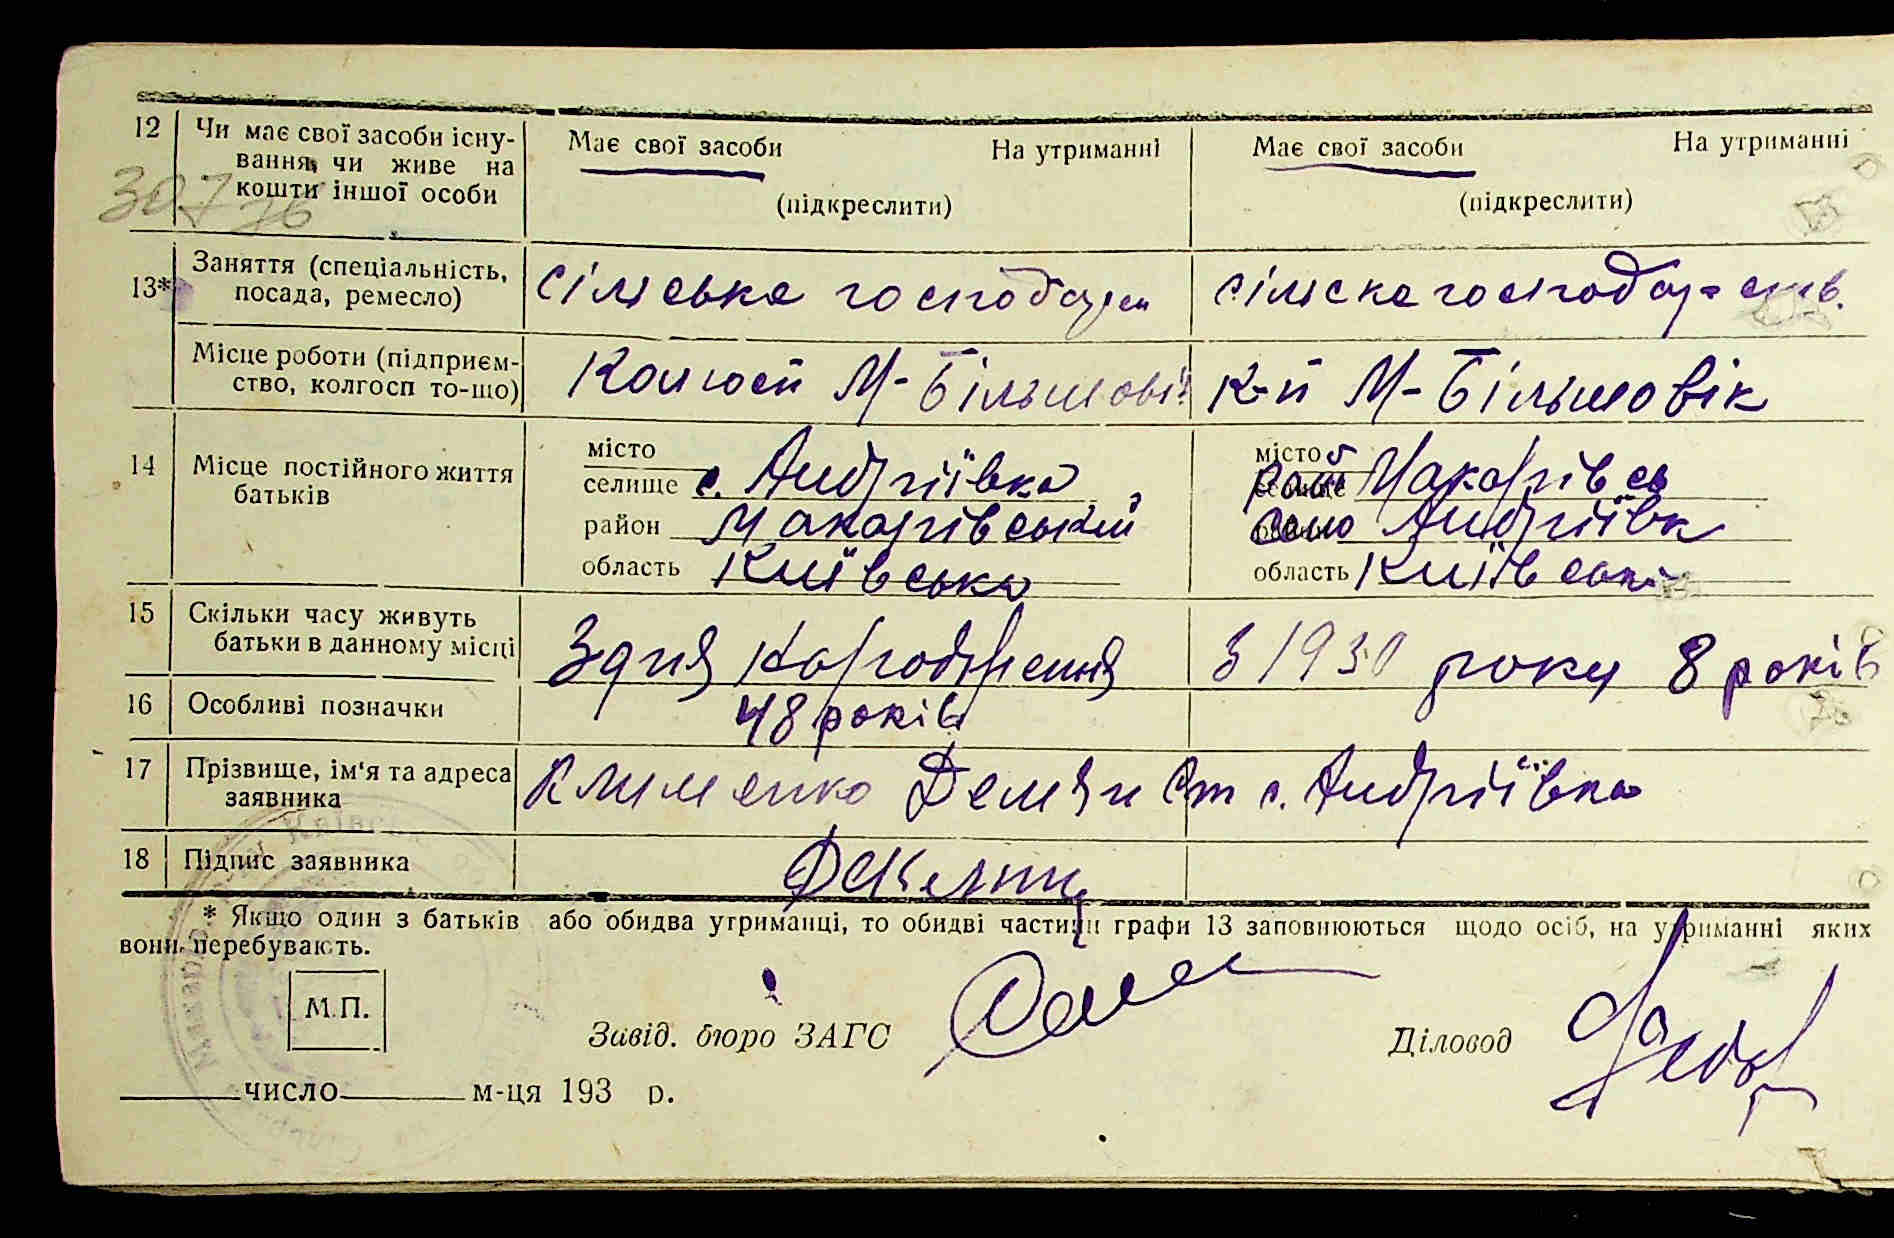 12 Чи має свої засоби існу-
вання, чи живе на
кошти іншої особи
Має свої засоби На утриманні
(підкреслити)
Має свої засоби На утриманні
(підкреслити)
307 76
13* Заняття (спеціальність,
посада, ремесло)
сільська господар
сілска господар-ств.
Місце роботи (підприєм-
ство, колгосп то-що)
Колгосп М-Більшові
К-п М-Більшовік
14 Місце постійного життя
батьків
місто
селище с. Андріївка
район Макарівський
область Київська
місто
рай Макарівсь
село Андріївк
область Київська
15 Скільки часу живуть
батьки в данному місці
З дня народження
48 років
З 1930 року 8 років
16 Особливі позначки
17 Прізвище, ім'я та адреса
заявника
Клименко Демян Ст с. Андріївка
18 Підпис заявника
* Якщо один з батьків або обидва утриманці, то обидві частини графи 13 заповнюються щодо осіб, на утриманні яких
вони перебувають.
М.П.
Завід. бюро ЗАГС
Діловод
число м-ця 193 р.